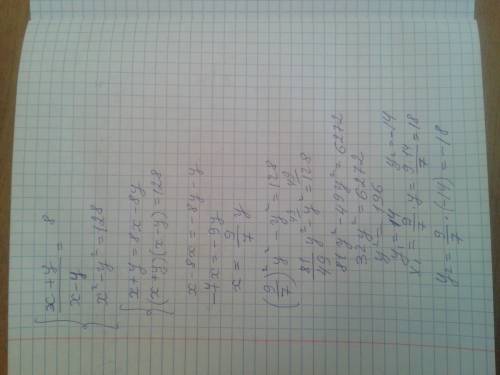 { (x+y)/(x-y) = 8
x² - y² = 128
{ x+y = 8x - 8y
(x+y)(x-y) = 128
x - 8x = -8y - y
-7x = -9y
x = 9/7 y
(9/7)² y² - y² = 128
81/49 y² - y² = 128
49
81y² - 49y² = 6272
32y² = 6272
y² = 196
y₁ = 14 y₂ = -14
x₁ = 9/7 · y = 9·14/7 = 18
y₂ = 9/7 · (-14) = -18